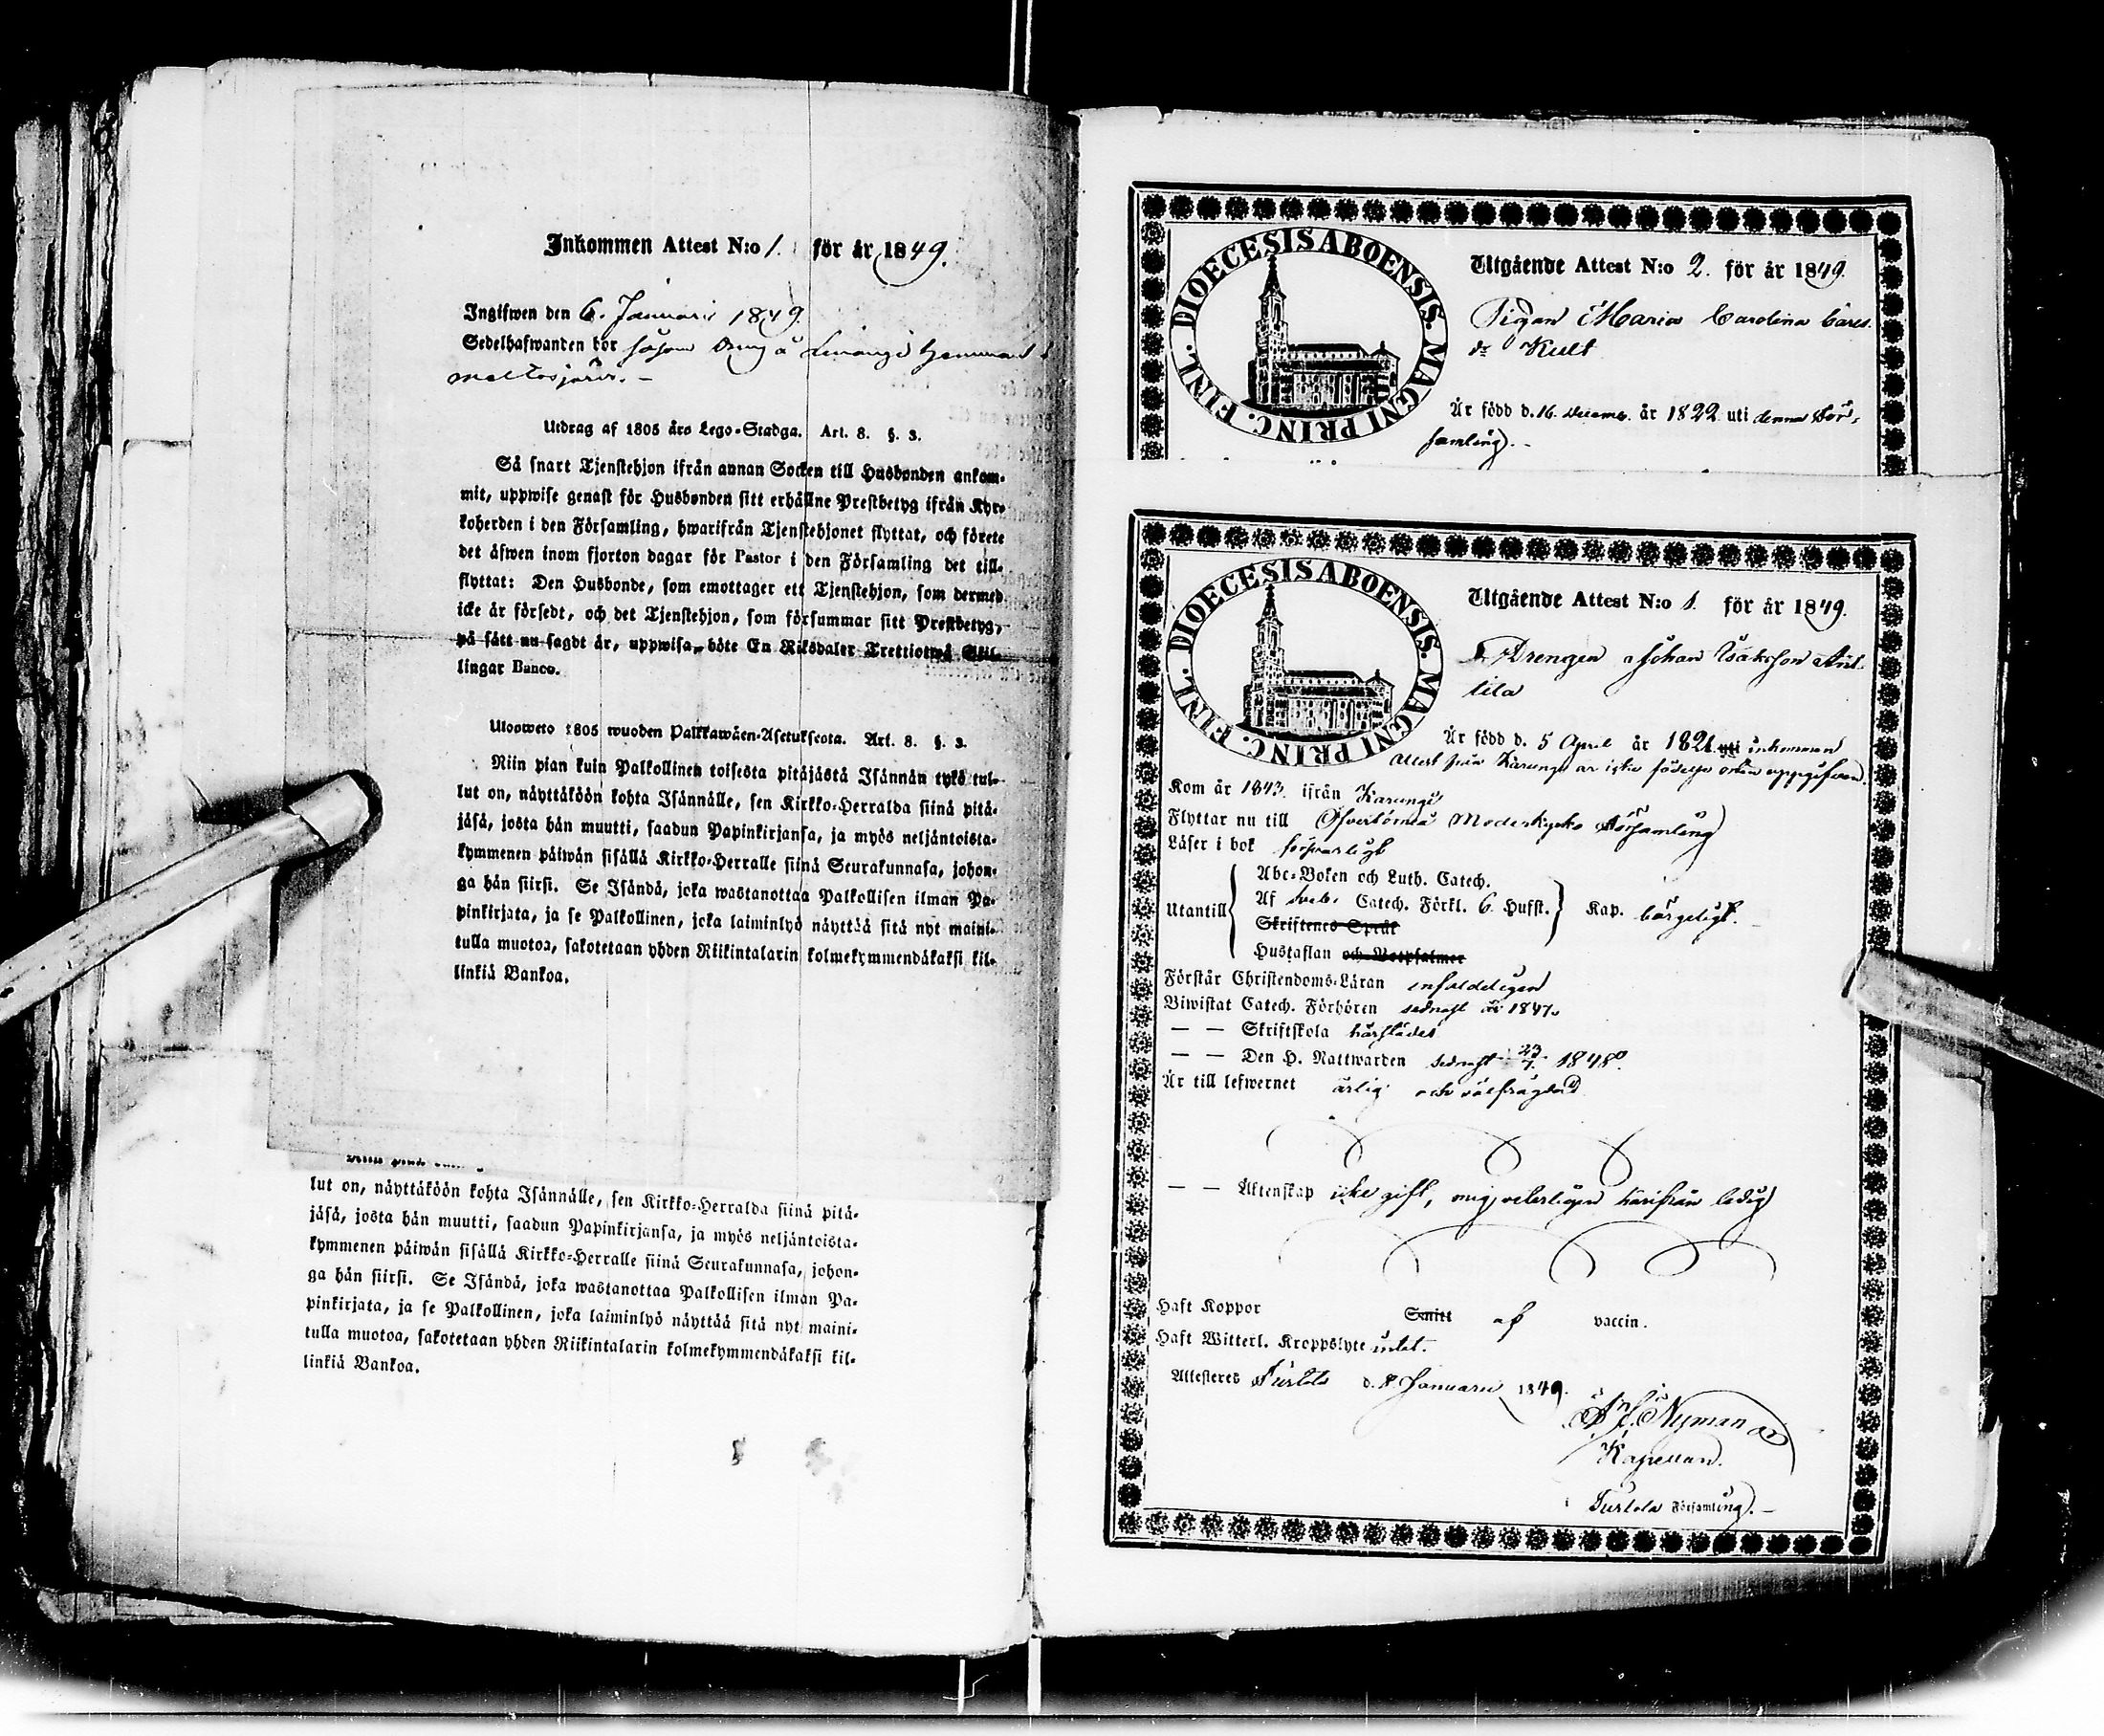 Inkommen Attest N:o 1. för år 1849.
Ingifwen den 6. Januari 1849.
Sedelhafwanden bor såsom dräng å Liwangi hemman i
Meltosjärvi. –
Utdrag af 1805 års Lego-Stadga. Art. 8. §. 3.
Så snart Tjenstehjon ifrån annan Socken till Husbonden ankom-
mit, uppwise genast för Husbonden sitt erhållne Prestbetyg ifrån Kyr-
koherden i den Församling, hwarifrån Tjenstehjonet flyttat, och förete
det äfwen inom fjorton dagar för Pastor i den Församling det till-
flyttat: Den Husbonde, som emottager ett Tjenstehjon, som dermed
icke är försedt, och det Tjenstehjon, som försummar sitt Prestbetyg,
på sätt nu sagdt är, uppwisa, böte En Riksdaler Trettiotwå Skil-
lingar Banco.
Ulosweto 1805 wuoden Palkkawäen-Asetuksesta. Art. 8. §. 3.
Niin pian kuin Palkollinen toisesta pitäjästä Isännän tykö tul-
lut on, näyttäköön kohta Isännälle, sen Kirkko-Herralda siinä pitä-
jäsä, josta hän muutti, saadun Papinkirjansa, ja myös neljäntoista-
kymmenen päiwän sisällä Kirkko-Herralle siinä Seurakunnasa, johon-
ga hän siirsi. Se Isändä, joka wastanottaa Palkollisen ilman Pa-
pinkirjata, ja se Palkollinen, joka laiminlyö näyttää sitä nyt maini-
tulla muotoa, sakotetaan yhden Riikintalarin kolmekymmendäkaksi kil-
linkiä Bankoa.
lut on, näyttäköön kohta Isännälle, sen Kirkko-Herralda siinä pitä-
jäsä, josta hän muutti, saadun Papinkirjansa, ja myös neljäntoista-
kymmenen päiwän sisällä Kirkko-Herralle siinä Seurakunnasa, johon-
ga hän siirsi. Se Isändä, joka wastanottaa Palkollisen ilman Pa-
pinkirjata, ja se Palkollinen, joka laiminlyö näyttää sitä nyt maini-
tulla muotoa, sakotetaan yhden Riikintalarin kolmekymmendäkaksi kil-
linkiä Bankoa.
DIOECESIS ABOENSIS. MAGNI PRINC. FINL.
Utgående Attest N:o 2. för år 1849.
Pigan Maria Carolina Carls
dr Kult
Är född d. 16. Decemb. år 1822 uti denna För-
samling. –
DIOECESIS ABOENSIS. MAGNI PRINC. FINL.
Utgående Attest N:o 1. för år 1849.
Drengen Johan Isaksson Ant-
tila
Är född d. 5 April år 1821 uti inkommen
Attest från Karungi är icke födelse orten uppgifwen.
Kom år 1843. ifrån Karungi
Flyttar nu till Öfvertorneå Moderkyrko Församling
Läser i bok försvarligt
Utantill
Abc-Boken och Luth. Catech.
Af Sveb. Catech. Förkl. 6 Hufst. Kap. börgeligt. –
Skriftenes Språk
Hustaflan och Botpsalmer
Förstår Christendoms-Läran enfaldeligen
Biwistat Catech. Förhören sednast år 1847.
– – Skriftskola härstädes
– – Den H. Nattwarden sednast 23/7. 1848.
Är till lefwernet ärlig och välfrägdad
– – Äktenskap icke gift, mig veterligen härifrån ledig
Haft Koppor Smitt af vaccin.
Haft Witterl. Kroppslyte intet.
Attesteres Turtola d. 8. Januarii 1849.
Nyman
Kapellan.
Turtola Församling. –